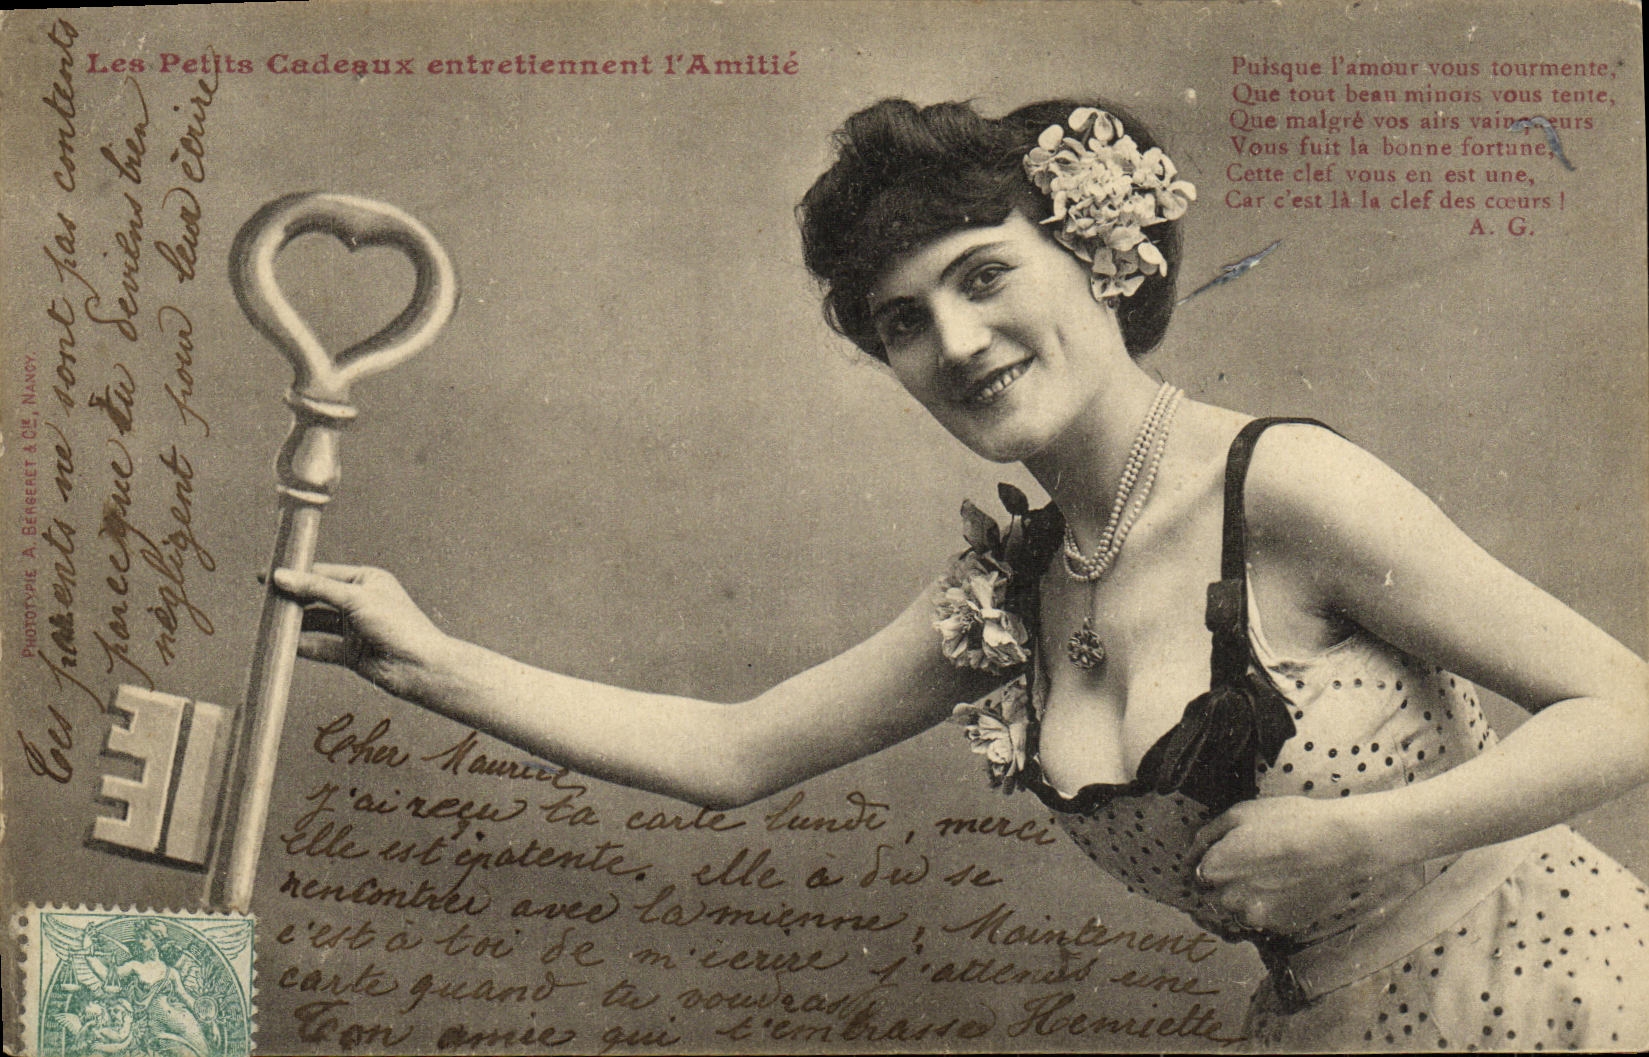 Les Petits Cadeaux entretiennent l'Amitié
Puisque l'amour vous tourmente,
Que tout beau minois vous tente,
Que malgré vos airs vainqueurs
Vous fuit la bonne fortune,
Cette clef vous en est une,
Car c'est là la clef des cœurs !
A. G.
PHOTOTYPIE A. BERGERET & Cie, NANCY.
Tes parents ne sont pas contents
parceque tu deviens bien
négligent pour leur écrire
Cher Maurice
J'ai reçu ta carte lundi, merci
elle est épatente. elle à du se
rencontrer avec la mienne, Maintenent
c'est à toi de m'écrire j'attends une
carte quand tu voudras
Ton amie qui t'embrasse Henriette